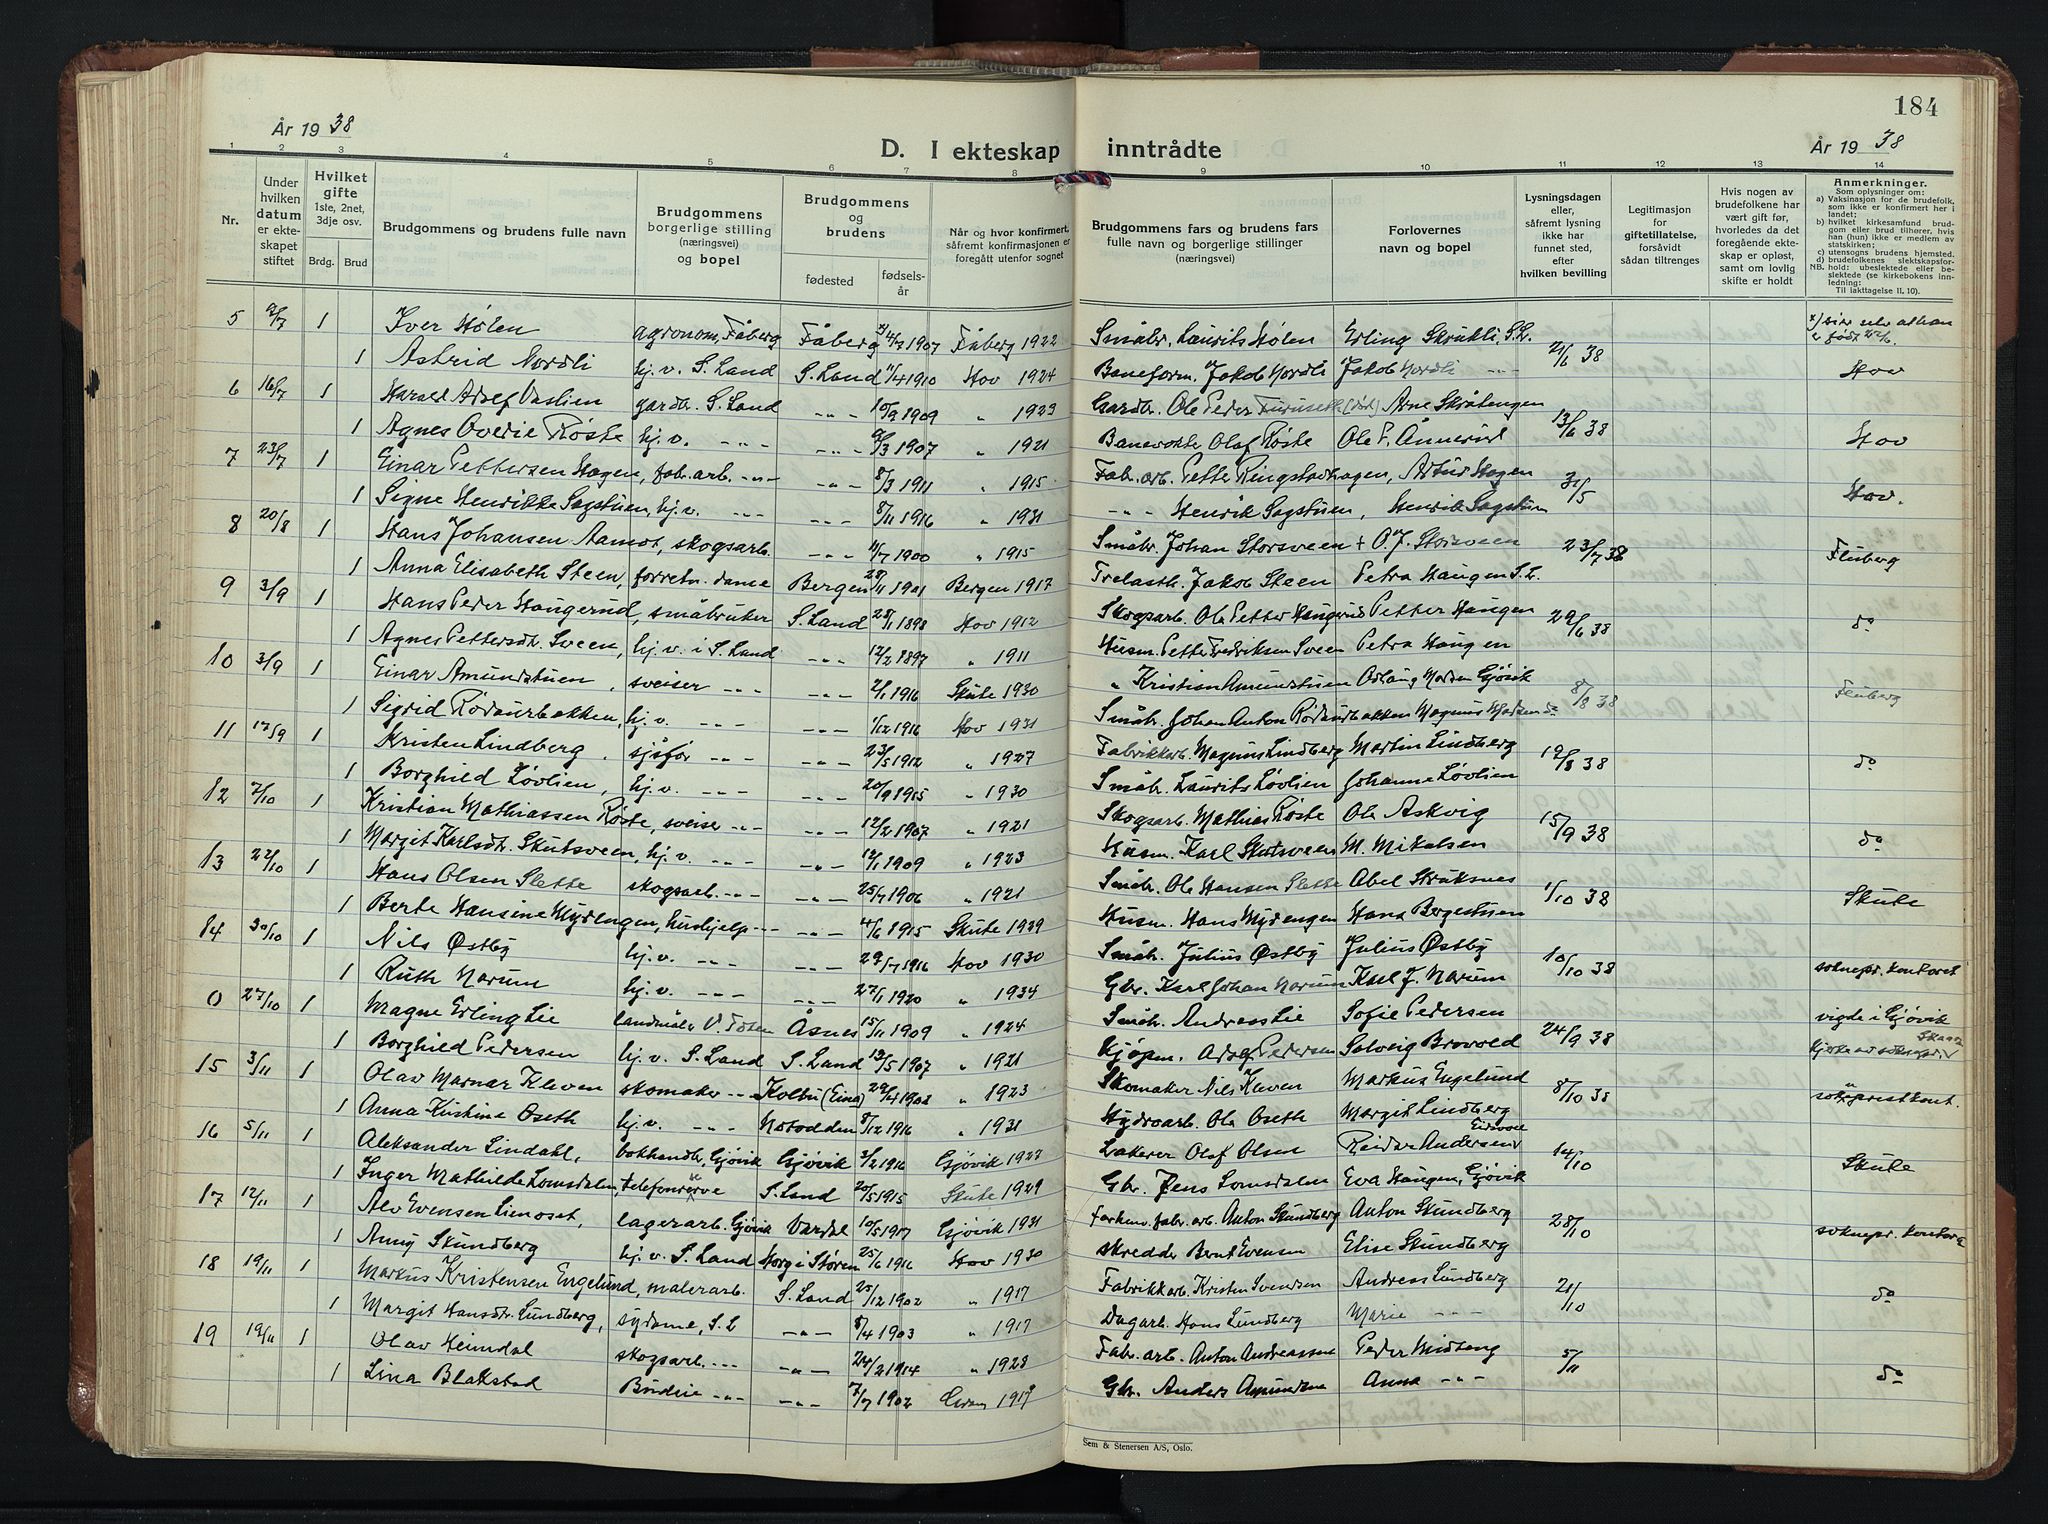 184
År 1938
D. I ekteskap inntrådte
År 1938
1 2 3 4 5 6 7 8 9 10 11 12 13 14
Nr.
Under hvilken datum er ekteskapet stiftet
Hvilket gifte 1ste, 2net, 3dje osv.
Brdg. Brud
Brudgommens og brudens fulle navn
Brudgommens borgerlige stilling (næringsvei) og bopel
Brudgommens og brudens
fødested
fødselsår
Når og hvor konfirmert, såfremt konfirmasjonen er foregått utenfor sognet
Brudgommens fars og brudens fars fulle navn og borgerlige stillinger (næringsvei)
Forlovernes navn og bopel
Lysningsdagen eller, såfremt lysning ikke har funnet sted, efter hvilken bevilling
Legitimasjon for giftetillatelse, forsåvidt sådan tiltrenges
Hvis nogen av brudefolkene har vært gift før, hvorledes da det foregående ekteskap er opløst, samt om lovlig skifte er holdt
Anmerkninger.
Som oplysninger om:
a) Vaksinasjon for de brudefolk, som ikke er konfirmert her i landet;
b) hvilket kirkesamfund brudgom eller brud tilhører, hvis han (hun) ikke er medlem av statskirken;
c) utensogns brudens hjemsted.
d) brudefolkenes slektskapsforhold: ubeslektede eller beslektede (se kirkebokens innledning:
NB. Til iakttagelse II, 10).
5 9/7 1 Iver Hølen agronom, Fåberg Fåberg x) 1907 Fåberg 1922 Småbr. Laurits Hølen Erling Skrukli, S.L. 21/6 38 x) sier selv at han er født 22/6.
1 Astrid Nordli hj. v. S. Land S. Land 11/4 1910 Hov 1924 Baneform. Jakob Nordli Jakob Nordli -"- Hov
6 16/7 1 Harald Adolf Vaslien gardbr. S. Land -"- 10/9 1909 " 1923 Gardbr. Ole Peder Furuseth (død) Arne Skråtengen 13/6 38
1 Agnes Overie Røste hj. v. -"- -"- 9/3 1907 " 1921 Banevokte Olaf Røste Ole P. Ånnerud Hov
7 23/7 1 Einar Pettersen Hagen, fab. arb. -"- -"- 8/3 1911 " 1915 Fab. arb. Petter Ringstadhagen, Artur Hagen 31/5
1 Signe Henrikke Sagstuen, hj. v. -"- -"- 8/11 1916 " 1931 -"- Henrik Sagstuen, Henrik Sagstuen Hov.
8 20/8 1 Hans Johansen Aamot, skogsarb. -"- 11/7 1900 " 1915 Småbr. Johan Storsveen + O. J. Storsveen 23/7 38
1 Anna Elisabeth Steen, forretn. dame Bergen 28/11 1901 Bergen 1917 Trelasth. Jakob Steen Petra Haugen S.L. Fluberg
9 3/9 1 Hans Peder Haugerud, småbruker S. Land 28/11 1898 Hov 1912 Skogsarb. Ole Petter Haugerud Petter Haugen 29/6 38
1 Agnes Pettersdtr. Sveen, hj. v. i S. Land -"- 12/2 1897 " 1911 Husm. Petter Fredriksen Sveen Petra Haugen do
10 3/9 1 Einar Amundstuen, sveiser -"- -"- 2/1 1916 Skute 1930 " Kristian Amundstuen Aslaug Madsen Gjøvik 8/8 38
1 Sigrid Rødaurbakken, hj. v. -"- -"- 1/12 1916 Hov 1931 Småbr. Johan Anton Rødaurbakken Magnus Madsen do Fluberg
11 17/9 1 Kristen Lindberg, sjåfør -"- -"- 23/5 1912 " 1927 Fabrikkarb. Magnus Lindberg Martin Lindberg 19/8 38
1 Borghild Løvlien, hj. v. -"- -"- 20/9 1915 " 1930 Småbr. Laurits Løvlien Johanne Løvlien do
12 7/10 1 Kristian Mathiassen Røste, sveiser -"- -"- 12/2 1907 " 1921 Skogsarb. Mathias Røste Ole Askvig 15/9 38
1 Margit Karlsdtr. Skutsveen, hj. v. -"- -"- 12/1 1909 " 1923 Husm. Karl Skutsveen M. Mikalsen do
13 22/10 1 Hans Olsen Slette skogsarb. -"- -"- 25/7 1906 " 1921 Småbr. Ole Hansen Slette Abel Struksnes 1/10 38
1 Berte Hansine Myrengen, hushjelp -"- -"- 4/6 1915 Skute 1929 Husm. Hans Myrengen Hans Bergestuen Skute
14 30/10 1 Nils Østby hj. v. -"- -"- 29/7 1916 Hov 1930 Småbr. Julius Østby Julius Østby 10/10 38
1 Ruth Narum hj. v. -"- -"- 27/1 1920 " 1934 Gbr. Karl Johan Narum Karl J. Narum soknepr. kontoret
0 27/10 1 Magne Erling Lie landmåler V. Toten Åsnes 15/11 1909 " 1924 Småbr. Andreas Lie Sofie Pedersen 24/9 38 vigde i Gjøvik
1 Borghild Pedersen hj. v. S. Land S. Land 13/5 1907 " 1921 Kjøpm. Adolf Pedersen Solveig Brovold kjerke av soknepr.
15 3/11 1 Olav Marnar Kleven skomaker -"- Kolbu (Eina) 29/4 1908 " 1923 Skomaker Nils Kleven Markus Engelund 8/10 38
1 Anna Kristine Oseth hj. v. -"- Notodden 8/12 1916 " 1931 Hydroarb. Ole Oseth Margit Lindberg sokneprestkont.
16 5/11 1 Aleksander Lindahl, bokhandlr. Gjøvik Gjøvik 3/2 1916 Gjøvik 1927 Lakerer Olaf Olsen Reidar Andersen Eidsvoll 14/10
1 Inger Mathilde Lomsdalen, S. Land 20/5 1915 Skute 1929 Gbr. Jens Lomsdalen Eva Haugen, Gjøvik Skute
17 12/11 1 Alv Evensen Lienoset, lagerarb. Gjøvik Vardal 10/5 1917 Gjøvik 1931 fab. arb. Anton Skundberg Anton Skundberg 28/10
1 Anny Skundberg hj. v. S. Land Horg i Støren 25/6 1916 Hov 1930 skredder Bernt Evensen Elise Skundberg soknepr. kontor
18 19/11 1 Markus Kristensen Engelund, malerarb. S. Land 25/12 1902 " 1917 Fabrikkarb. Kristen Svendsen Andreas Lundberg 21/10
1 Margit Hansdtr. Lundberg, sydame, S. L -"- 8/4 1903 " 1917 Dagarb. Hans Lundberg Marie -"- do
19 19/11 1 Olav Heimdal skogsarb. -"- -"- 24/2 1914 " 1928 Fab. arb. Anton Andreassen Peder Midteng 5/11
1 Lina Blakstad Budeie -"- -"- 7/7 1902 1917 Gbr. Anders Amundsen Anna -"- do
Sem & Stenersen A/S, Oslo.